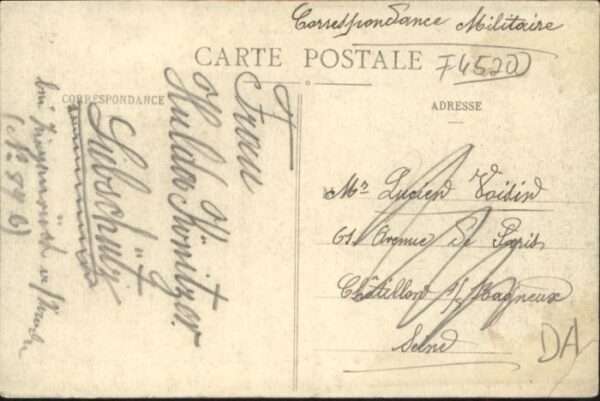 Correspondance Militaire
CARTE POSTALE
74520
CORRESPONDANCE
ADRESSE
Frau
Hulda Könitzer
Liebschütz
bei
(No 54 b)
Mr Lucien Voisin
61 Avenue de Paris
Châtillon s/s Bagneux
Seine
DA